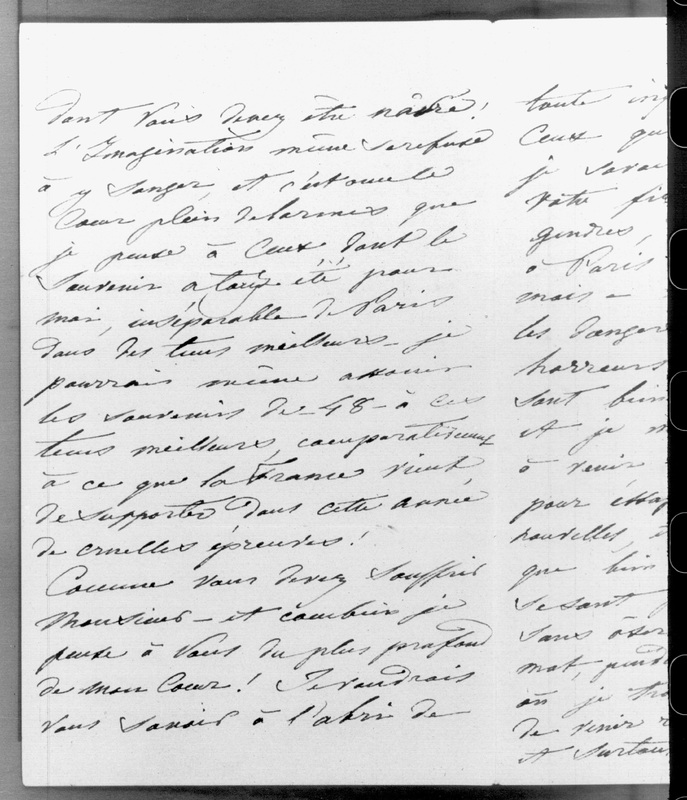 dont vous devez être navré!
L'Imagination même se refuse
à y songer, et c'est avec le
Coeur plein de larmes que
je pense à Ceux dont le
Souvenir a toujs été pour
moi, inséparable de Paris
dans des tems meilleurs - je
pourrais même
les souvenirs de - 48 - à ces
tems meilleurs, comparativement
à ce que la France vient
de supporter dans cette année
de cruelles épreuves!
Comme vous devez souffrir
Monsieur - et combien je
pense à Vous du plus profond
de mon Coeur! Je voudrais
vous savoir à l'abri de
toute
Ceux
je
vôtre
gendres,
à Paris
mais -
les
horreurs
sont bien
et je
à venir
pour
nouvelles,
que bien
se sont
sans oser
mot,
où je
de venir
et surtou